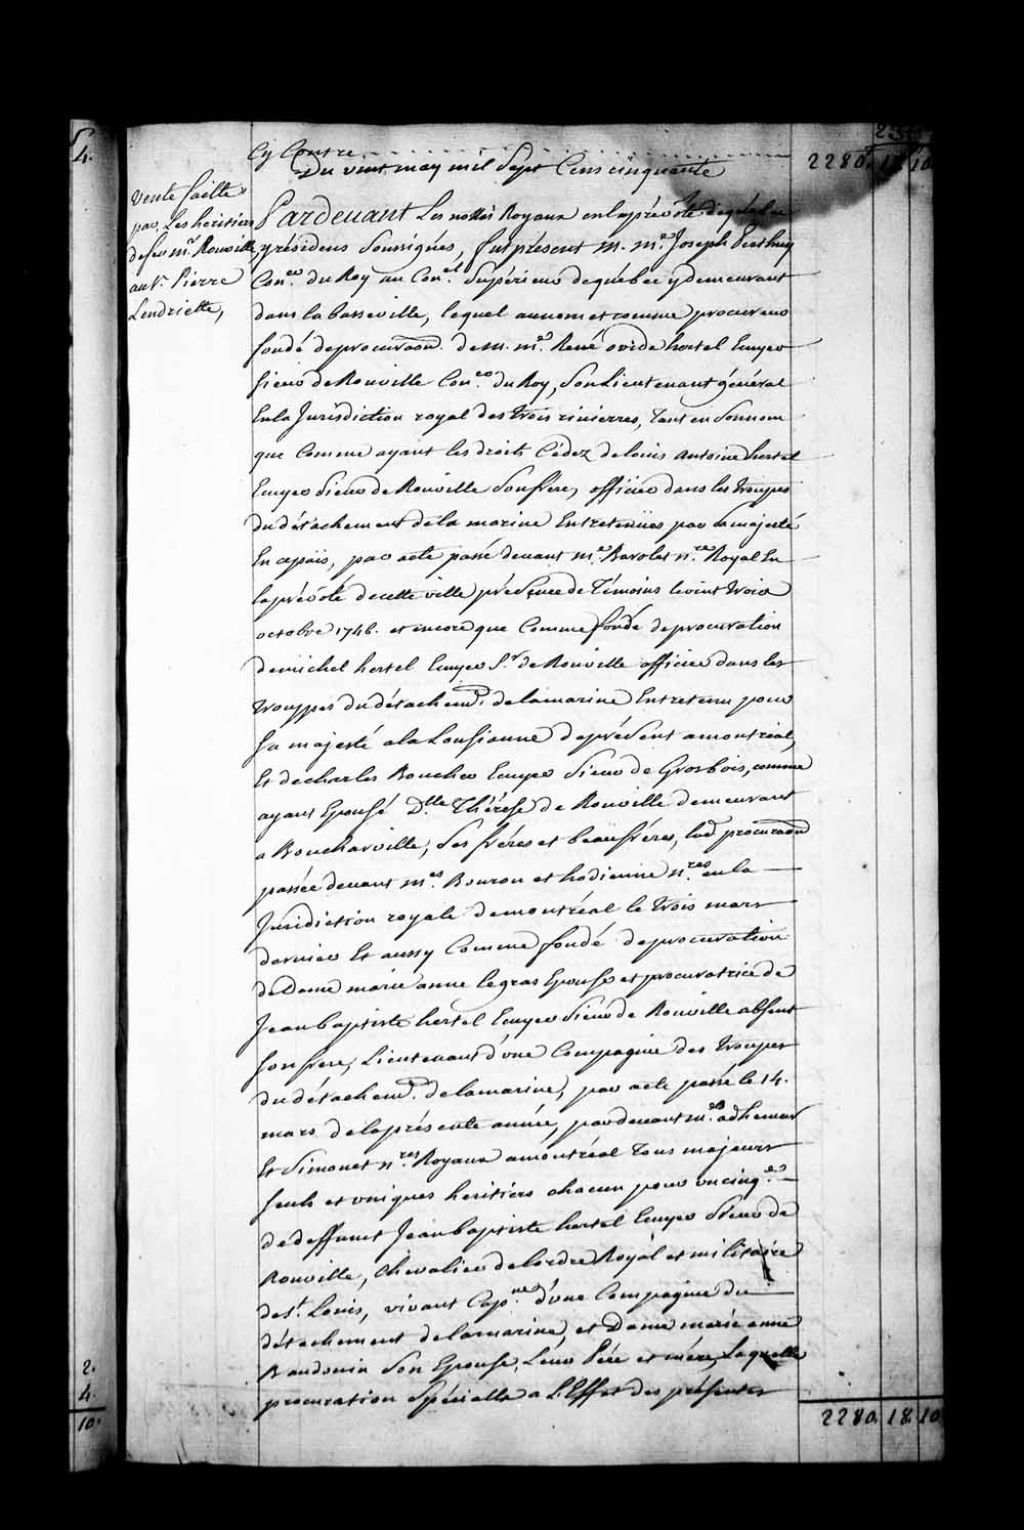 4.
Cy Contre
2280. 18. 10
Du vint may mil Sept Cens cinquante
vente faitte
par Les heritiers
de feu mr. Rouville,
au Sr. Pierre
Lendriette,
Pardevant Les nottres Royaux en la prévôté dequébec
y résidens Soussignés, fut présent m. me. Joseph Perthuy
Coner. du Roy au Conel. Supérieur de québec y demeurant
dans la basseville, lequel au nom et comme procureur
fondé de procuraon. de m. me. René ovide hertel Ecuyer
sieur de Rouville Coner. du Roy, Son Lieutenant général
En la Jurisdiction royal des trois rivierres, Tant en Son nom
que Comme ayant les droits Cédez de louis antoine hertel
Ecuyer Sieur de Rouville Son frere, officier dans les troupes
du détachement de la marine Entretenües par Sa majesté
En ce païs, par acte passé devant me. Barolet nre. Royal En
la prévôté de cette ville présence de Témoins le vint trois
octobre 1748. et encore que Comme fondé de procuration
de michel hertel Ecuyer Sr. de Rouville officier dans les
trouppes du détachemt. de la marine Entretenu pour
Sa majesté a la Louisianne de présent a montréal,
Et de charles Boucher Ecuyer Sieur de Grosbois, comme
ayant Epousé Dlle. Thérese de Rouville demeurant
a Boucharville, Ses fréres et beaufrére, lad. procuraon
passée devant mes. Bouron et hodienne nres. en la
Juridiction royale de montréal le trois mars
dernier Et aussy Comme fondé de procuration
de Dame marie anne legras Epouse et procuratrice de
Jean baptiste hertel Ecuyer Sieur de Rouville absent
Son frere, Lieutenant d'une Compagnie des troupes
du détachemt. de la marine, par acte passé le 14.
mars de la présente année, pardevant mes. adhemar
Et Simonet nres. Royaux a montréal Tous majeurs
Seuls et uniques heritiers chacun pour un cinqe.
de deffunct Jean baptiste hertel Ecuyer Sieur de
Rouville, Chevalier de l'ordre Royal et militaire
de St. Louis, vivant Capne. d'une Compagnie du
détachement de la marine, et Dame marie anne
Baudouin Son Epouse, Leur Pére et mére, Laquelle
procuration Spécialle a L'Effet des présentes
2.
4.
10.
2280. 18. 10